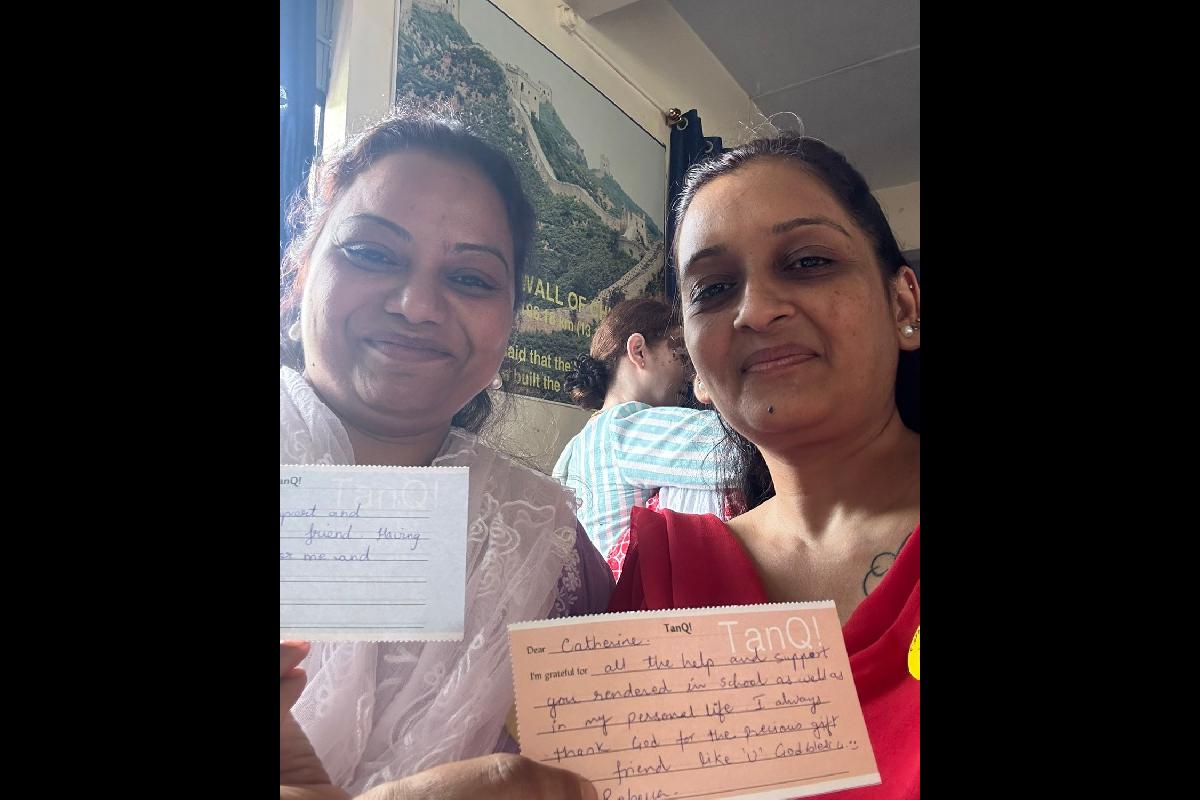 WALL OF
said that the
built the
TanQ!
TanQ!
port and
friend. Having
me and
TanQ!
TanQ!
Dear Catherine.
I'm grateful for all the help and support
you rendered in school as well as
in my personal life I always
thank God for the precious gift
friend like 'U' God bless U :)
Rebecca.